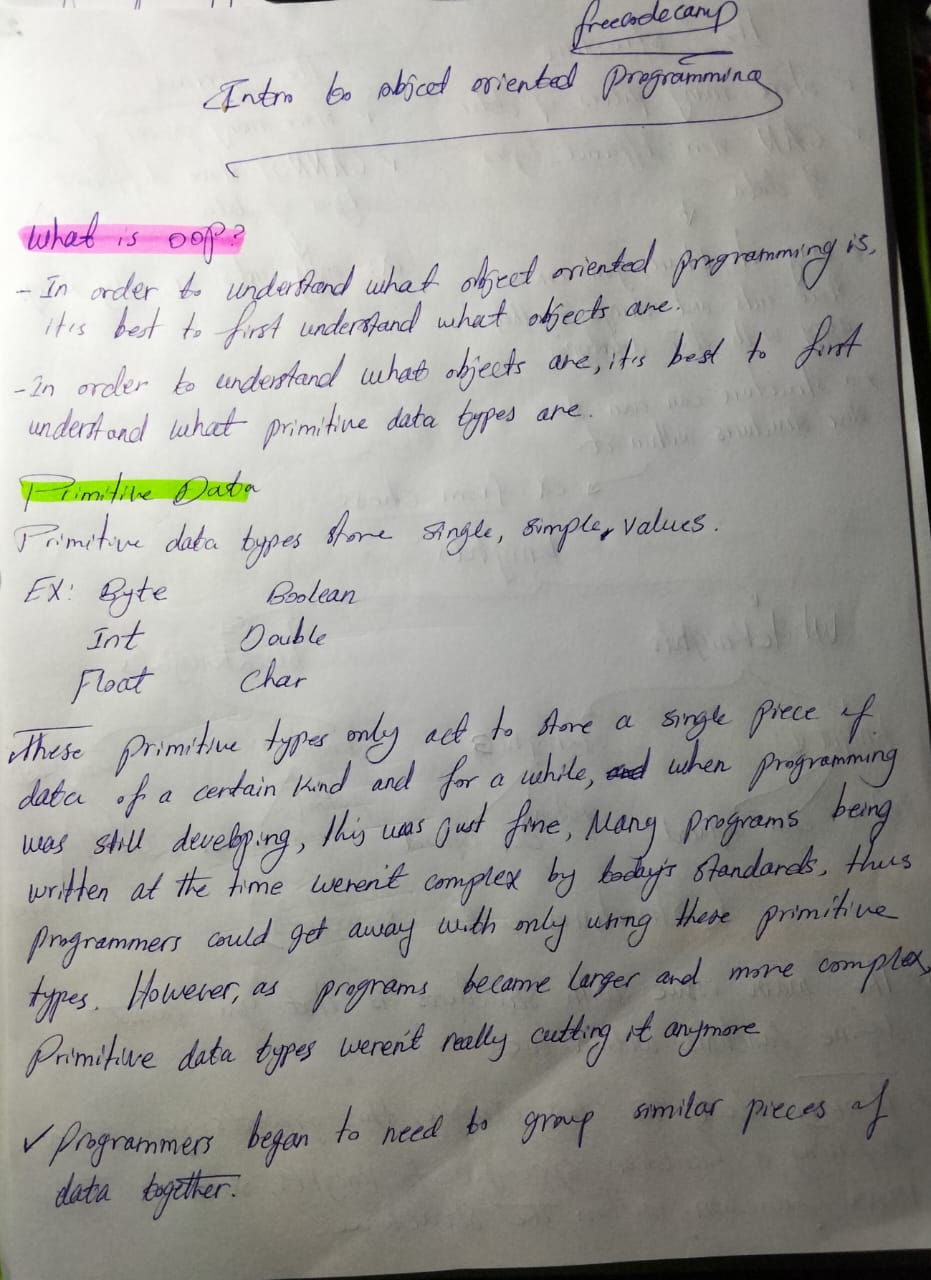 freecodecamp
Intro to object oriented programming
What is OOP?
- In order to understand what object oriented programming is,
it is best to first understand what objects are.
- In order to understand what objects are, it is best to first
understand what primitive data types are.
Primitive Data
Primitive data types store single, simple, values.
EX: Byte Boolean
Int Double
Float Char
These primitive types only act to store a single piece of
data of a certain kind and for a while, and when programming
was still developing, this was just fine, Many programs being
written at the time weren't complex by today's standards, thus
programmers could get away with only using these primitive
types. However, as programs became larger and more complex,
Primitive data types weren't really cutting it anymore
✓ Programmers began to need to group similar pieces of
data together.